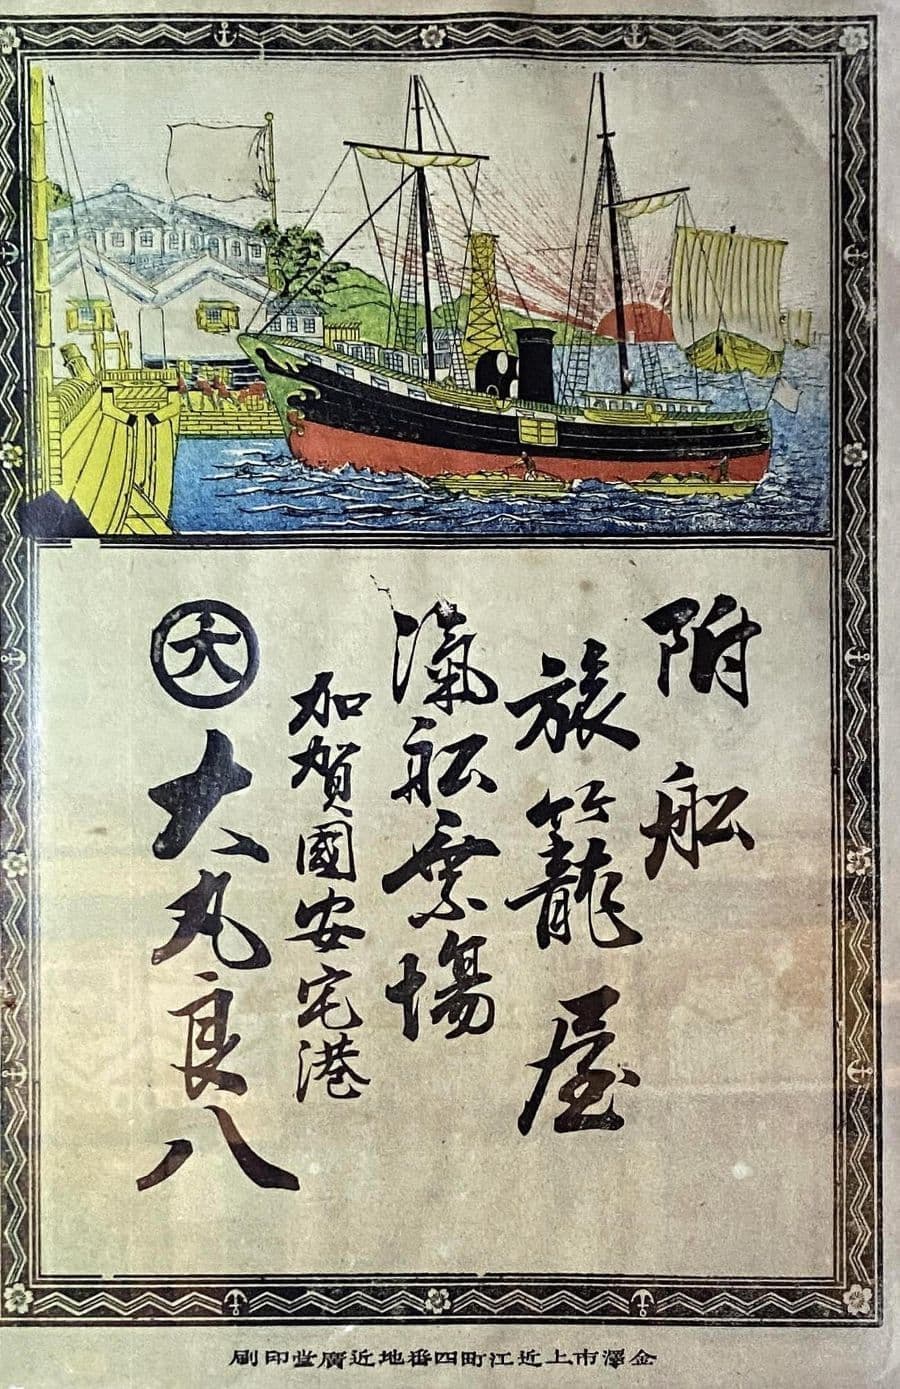 附船
旅籠屋
滊船乗塲
加賀國安宅港
大
大丸良八
金澤市上近江町四番地近廣堂印刷